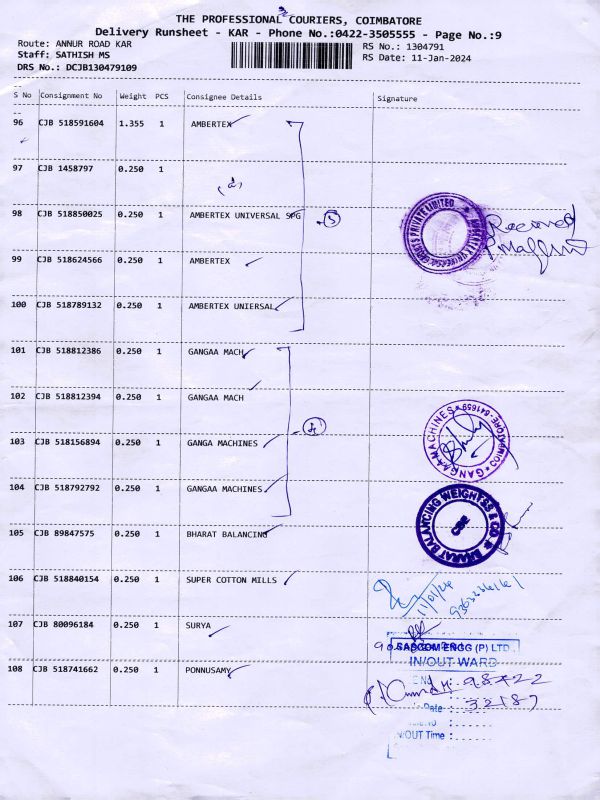 THE PROFESSIONAL COURIERS, COIMBATORE
Delivery Runsheet - KAR - Phone No.:0422-3505555 - Page No.:9
Route: ANNUR ROAD KAR RS No.: 1304791
Staff: SATHISH MS RS Date: 11-Jan-2024
DRS No.: DCJB130479109
S No Consignment No Weight PCS Consignee Details Signature
96 CJB 518591604 1.355 1 AMBERTEX
97 CJB 1458797 0.250 1
98 CJB 518850025 0.250 1 AMBERTEX UNIVERSAL SPG
5
AMBERTEX UNIVERSAL PRIVATE LIMITED
Received
99 CJB 518624566 0.250 1 AMBERTEX
100 CJB 518789132 0.250 1 AMBERTEX UNIERSAL
101 CJB 518812386 0.250 1 GANGAA MACH
102 CJB 518812394 0.250 1 GANGAA MACH
4
GANGAA MACHINES COIMBATORE-641659
103 CJB 518156894 0.250 1 GANGA MACHINES
104 CJB 518792792 0.250 1 GANGAA MACHINES
BHARAT BALANCING WEIGHTSS & CO
CBE
105 CJB 89847575 0.250 1 BHARAT BALANCING
106 CJB 518840154 0.250 1 SUPER COTTON MILLS
11/01/24
107 CJB 80096184 0.250 1 SURYA
SAPCOM ENGG (P) LTD.
IN/OUT WARD
108 CJB 518741662 0.250 1 PONNUSAMY
98422
Date : 32187
IN/OUT Time :